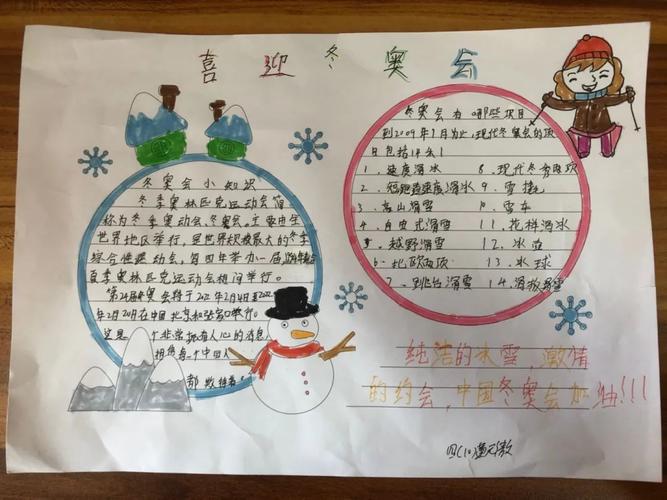 喜迎冬奥会
冬奥会小知识
冬季奥林匹克运动会简
称为冬季奥动会、冬奥会。主要由全
世界地区举行，是世界规模最大的冬季
综合性运动会，每四年举办一届
夏季奥林匹克运动会相间举行。
第24届冬奥会将于2022年2月4日至2022
年2月20日在中国北京和张家口举行。
这是一个非常振奋人心的消息
相信每一个中国人
都
冬奥会有哪些项目
到2009年1月为止，现代冬奥会的项
目包括什么！
1、速度滑冰 8、现代冬季两项
2、短跑道速度滑冰 9、雪橇
3、高山滑雪 10、雪车
4、自由式滑雪 11、花样滑冰
5、越野滑雪 12、冰壶
6、北欧两项 13、冰球
7、跳台滑雪 14、滑板滑雪
纯洁的冰雪，激情
的约会，中国冬奥会加油!!!
四(10)